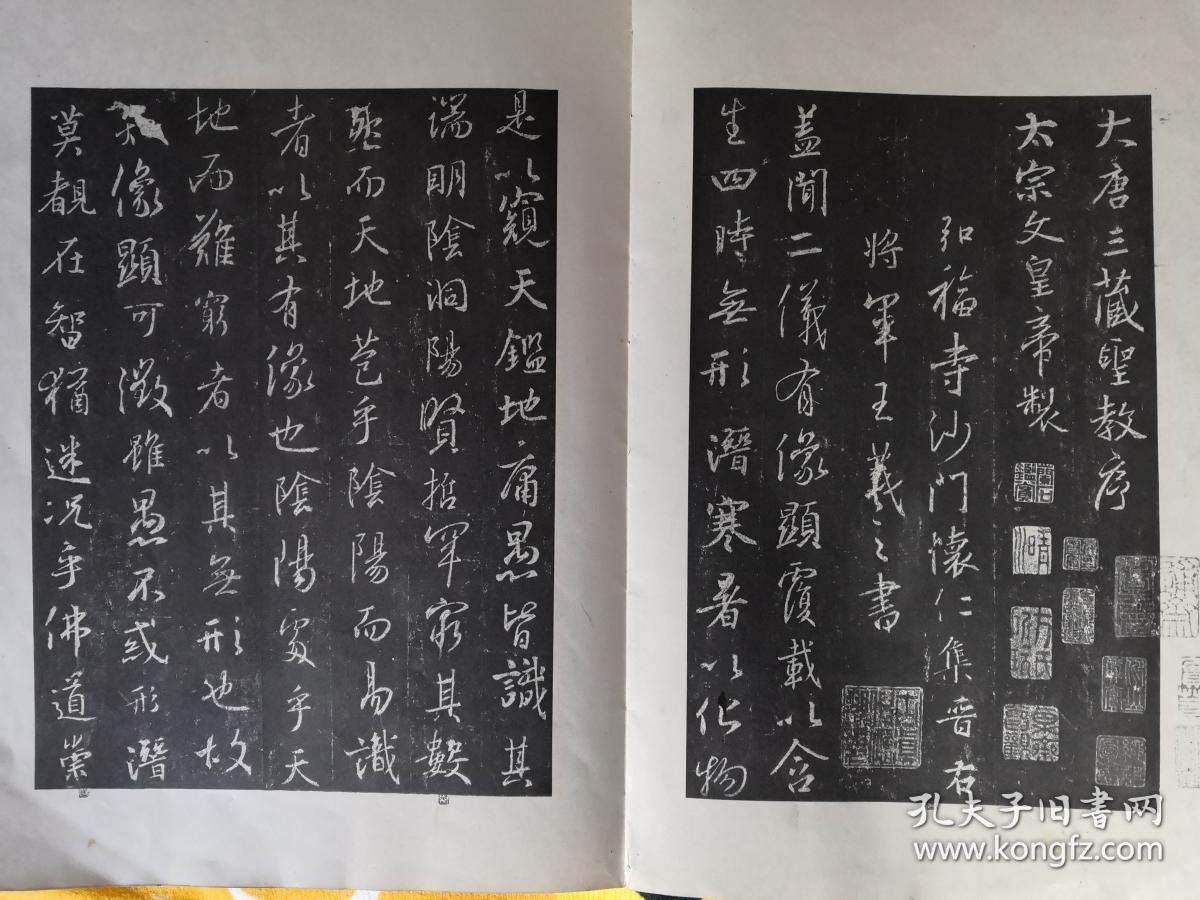 大唐三藏聖教序
太宗文皇帝製
弘福寺沙門懷仁集晉右
將軍王羲之書
蓋聞二儀有像顯覆載以含
生四時無形潛寒暑以化物
是以窺天鑑地庸愚皆識其
端明陰洞陽賢哲罕窮其數
然而天地苞乎陰陽而易識
者以其有像也陰陽處乎天
地而難窮者以其無形也故
知像顯可徵雖愚不惑形潛
莫覩在智猶迷況乎佛道崇
孔夫子旧书网
www.kongfz.com